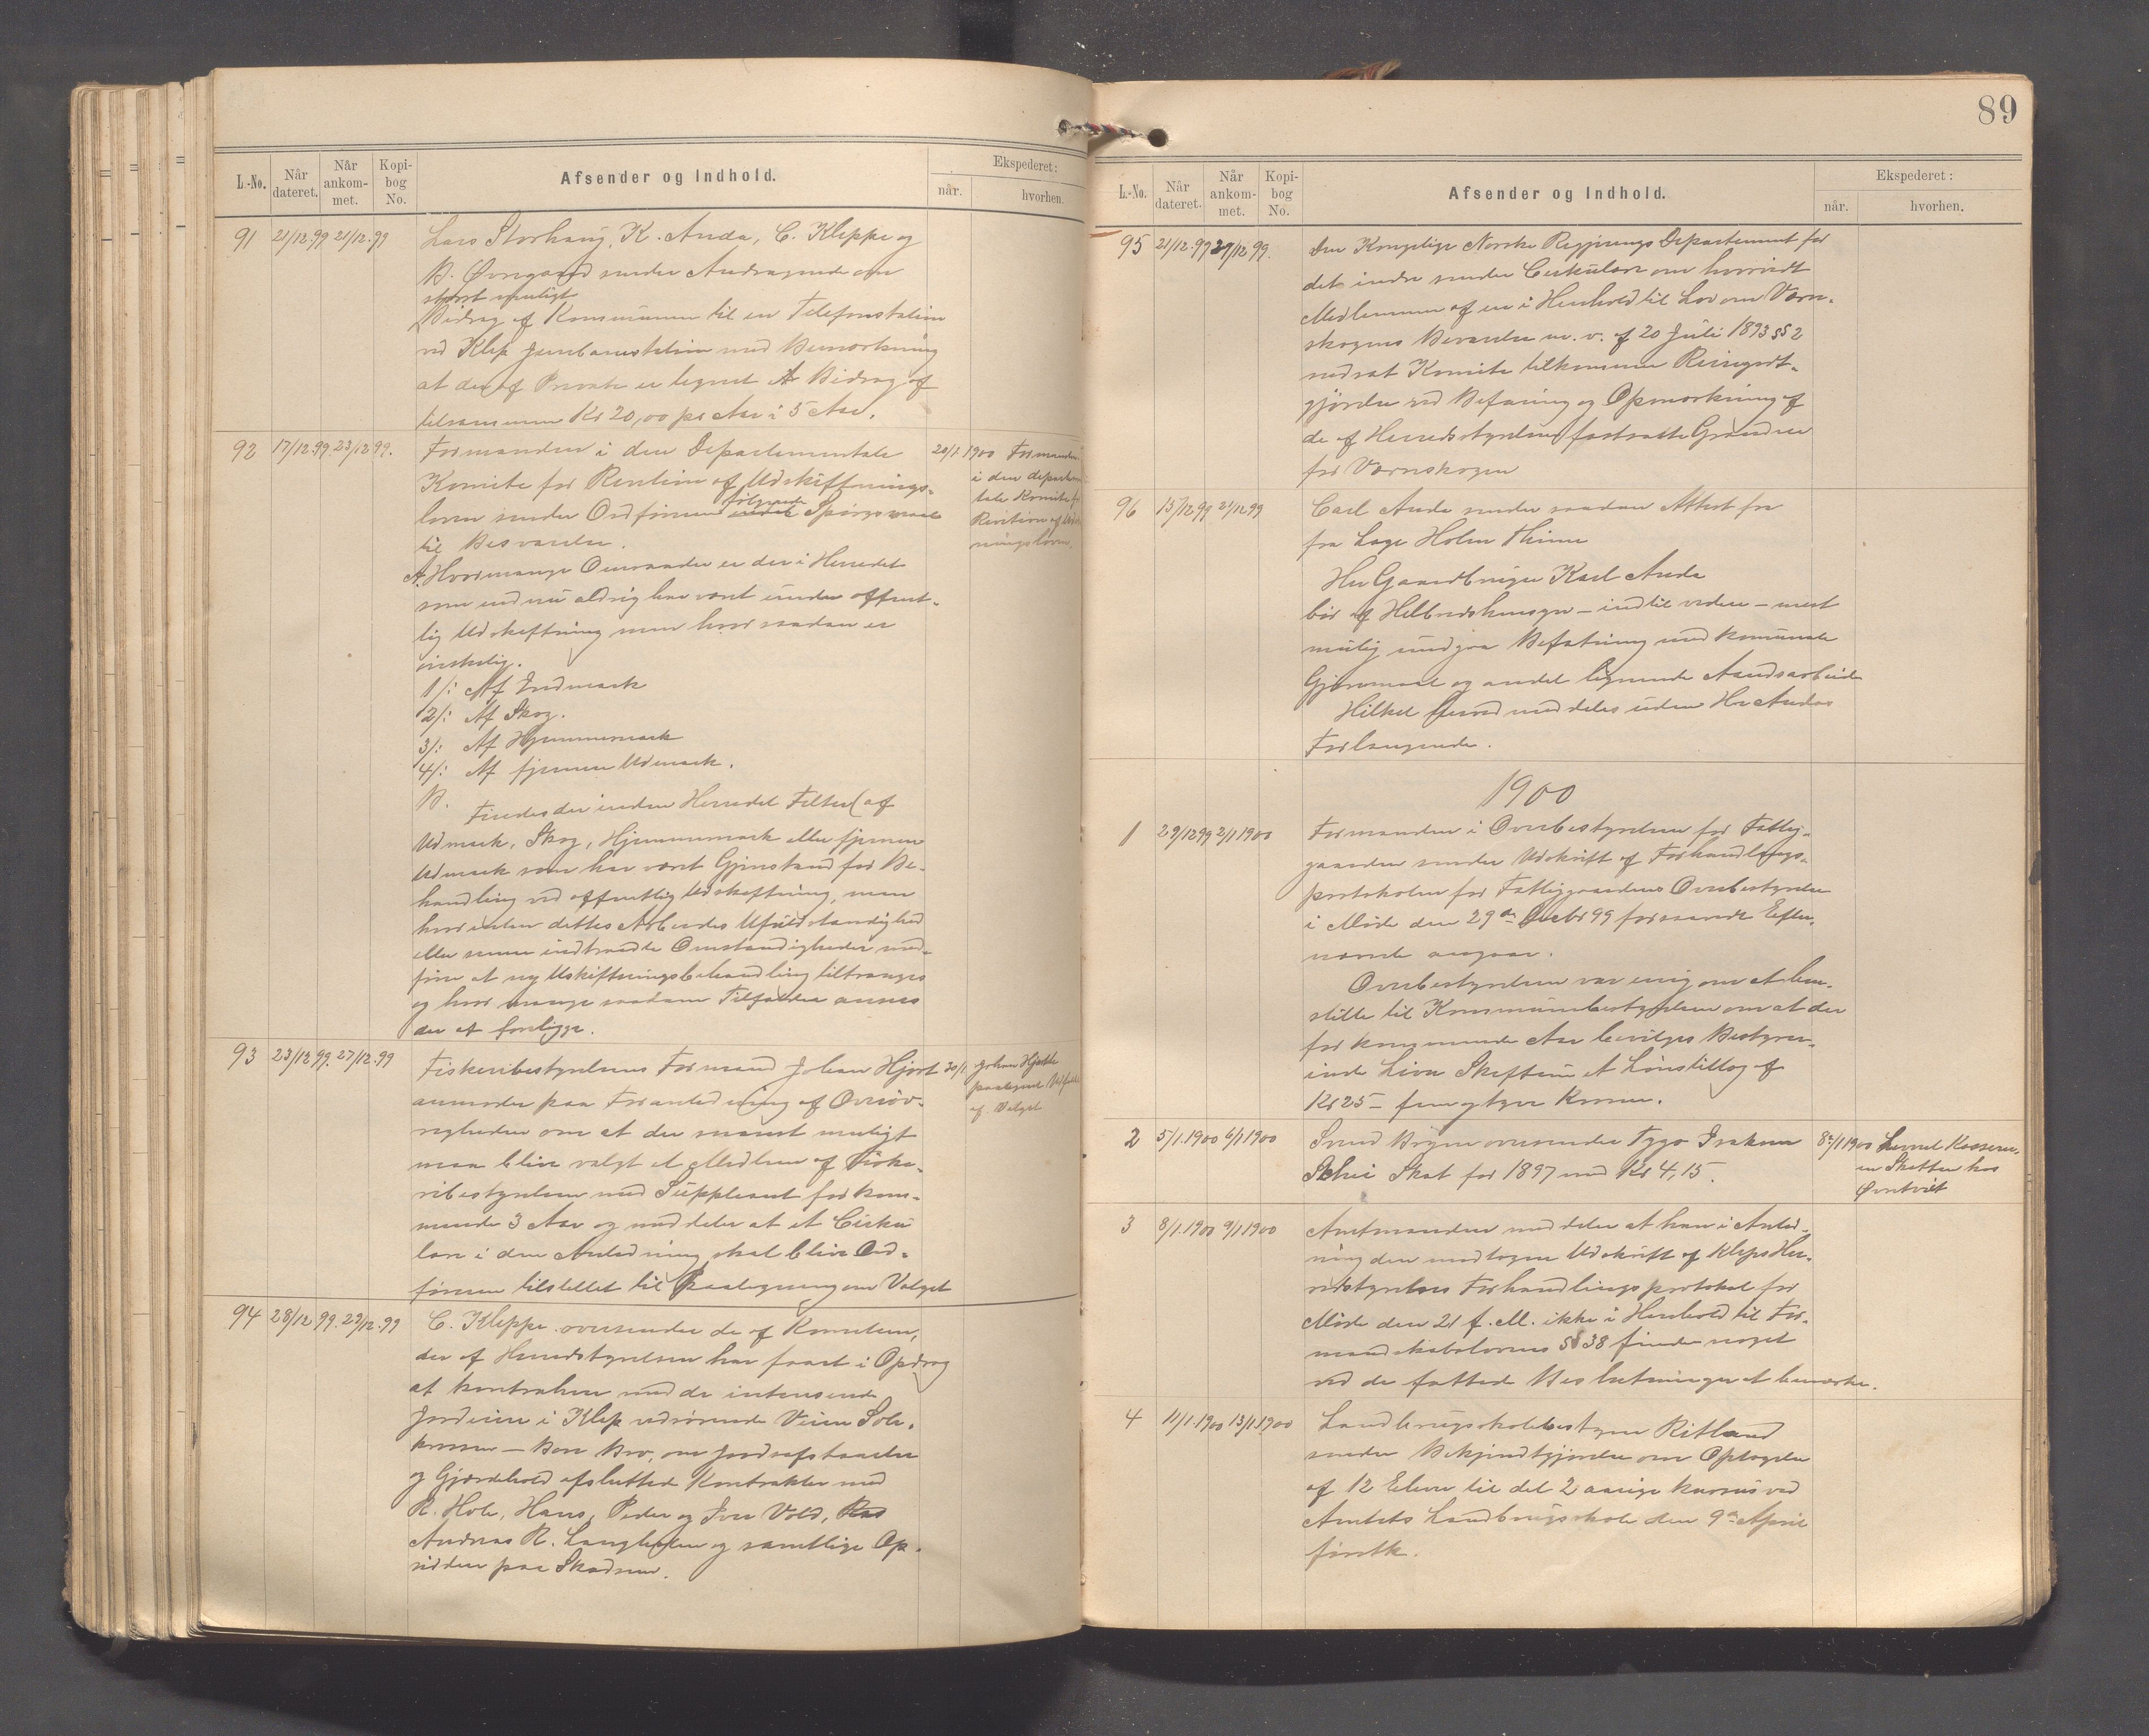 L.-No.
Når dateret.
Når ankom-met.
Kopi-bog No.
Afsender og Indhold.
Ekspederet:
når.
hvorhen.
91 21/12.99 21/12.99
Lars Storhaug, K. Anda, C. Kleppe og
B. Øvregaard sender Andragende om
størst muligt
Bidrag af Kommunen til en Telefonstation
ved Klep Jernbanestation med Bemærkning
at der af Private er tegnet et Bidrag af
tilsammen Kr 20,00 pr Aar i 5 Aar.
92 17/12.99. 23/12 99.
Formanden i den Departementale
Komite for Revision af Udskiftnings-
loven sender Ordføreren følgende Spørgsmaal
til Besvarelse.
A. Hvormange Omraader er der i Herredet
som endnu aldrig har været under offent-
lig Udskiftning men hvor saadan er
ønskelig.
1/: Af Indmark
2/: Af Skog.
3/: Af Hjemmemark
4/: Af fjernere Udmark.
B.
Findes der inden Herredet Felter (af
Udmark, Skog, Hjemmemark eller fjernere
Udmark som har været Gjenstand for Be-
handling ved offentlig Udskiftning, men
hvor enten dettes Arbeides Ufuldstændighed
eller senere indtraadte Omstændigheder med-
fører at ny Udskiftningsbehandling tiltrænges
og hvor mange saadanne Tilfælder annes
der at foreligge.
1900 Formanden
i den departemen
tale Komite for
Revision af Udskift
ningsloven.
93 23/12 99. 27/12.99
Fiskeribestyrelsens Formand Johan Hjort
anmoder paa Foranledning af Overøv-
righeden om at der snarest muligt
maa blive valgt et Medlem af Fiske-
ribestyrelsen med Suppleant for kom-
mende 3 Aar og meddeler at et Cirku
lære i den Anledning skal blive Ord-
føreren tilstillet til Paategning om Valget
30/1. Johan Hjort
paategnet Udfaldet
af Valget
94 28/12 99. 29/12.99
C. Kleppe oversender de af Komiteen,
der af Herredstyrelsen har faaet i Opdrag
at kontrahere med de interesserede
Jordeiere i Klep vedrørende Veien Sole-
krossen – Bore Bro, om Jordafstaaelse
og Gjærdehold afsluttede Kontrakter med
R. Hole, Hans, Peder og Iver Vold,
Andreas R. Langholen og samtlige Op-
siddere paa Skadsem.
89
L.-No.
Når dateret.
Når ankom-met.
Kopi-bog No.
Afsender og Indhold.
Ekspederet:
når.
hvorhen.
95 21/12.99 27/12 99.
Den Kongelige Norske Regjerings Departement for
det indre sender Cirkulære om hvorvidt
Medlemmer af en i Henhold til Lov om Værn-
skogens Bevarelse m.v. af 20 Juli 1893 §§ 2
nedsat Komite tilkommer Reisegodt-
gjørelse ved Befaring og Opmærkning af
de af Herredsstyrelsen fastsatte Grændser
for Værnskogen
96 15/12 99 21/12 99
Carl Anda sender saadan Attest fra
fra Læge Holm Thime
Hr Gaardbruger Karl Anda
bør af Helbredshensyn – indtil videre – mest
mulig undgaa Befatning med komunale
Gjøremaal og andet lignende Aandsarbeide
Hilket herved meddeles uden Hr Andas
Forlangende.
1900
1 29/12 99 2/1 1900
Formanden i Overbestyrelsen for Fattig-
gaarden sender Udskrift af Forhandlings-
protokolen for Fattiggaardens Overbestyrelse
i Møde den 29de Decbr 99 forsaavidt Efter-
nævnte angaar.
Overbestyrelsen var enig om at hen-
stille til Kommunebestyrelsen om at der
for kommende Aar bevilges Bestyrer-
inde Lina Skeftun et Lønstillæg af
Kr 25 – fem og tyve Kroner.
2 5/1.1900 6/1 1900
Svend Bryne oversender Tygo Isaksen
Schei Skat for 1897 med Kr 4,15.
Leveret Kasseren
en Skatten hos
3 8/1.1900 9/1 1900
Amtmanden meddeler at han i Anled-
ning den modtagne Udskrift af Kleps Her-
redstyrelses Forhandlingsprotokol for
Møde den 21 f. M. ikke i Henhold til For-
mandskabslovens § 38 finder noget
ved de fattede Beslutninger at bemærke.
4 11/1.1900 13/1 1900
Landbrugsskolebestyrer Ritland
sender Bekjendtgjørelse om Optagelse
af 12 Elever til det 2 aarige kursus ved
Amtets Landbrugsskole den 9de April
førstk.